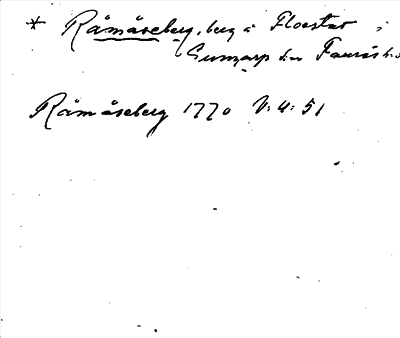 * Råmåseberg, berg å Floestad i
Gumarp sn Faurås hd
Råmåseberg 1770 V: 4: 51